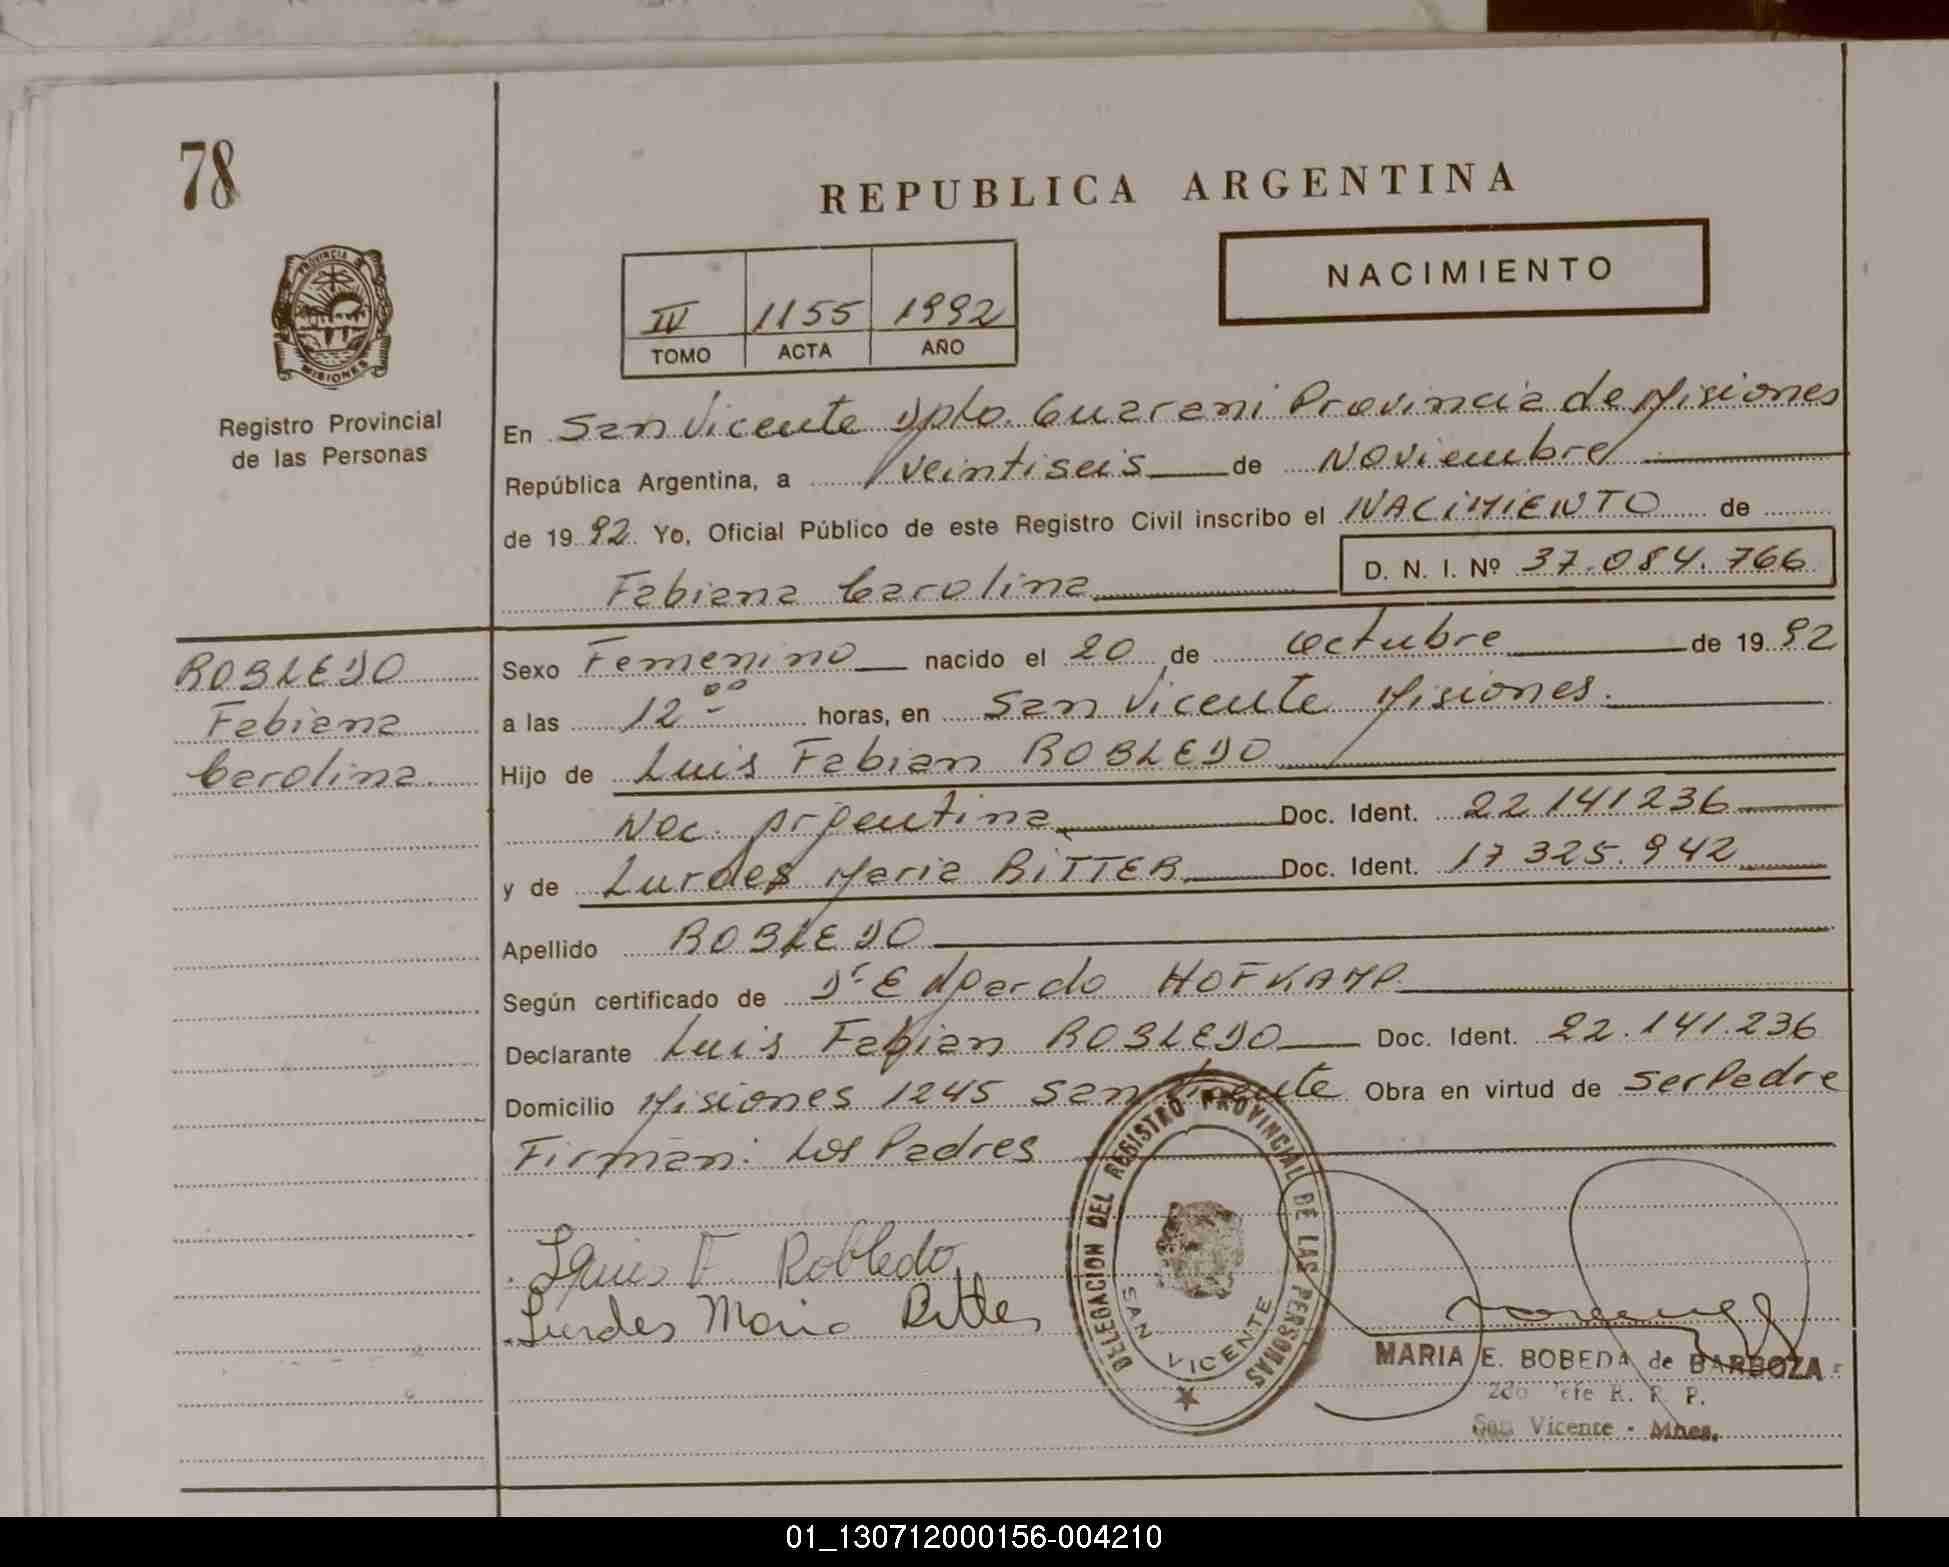 78
REPUBLICA ARGENTINA
NACIMIENTO
IV 1155 1992
TOMO ACTA AÑO
PROVINCIA DE
MISIONES
Registro Provincial
de las Personas
En San Vicente Dpto. Guarani Provincia de Misiones
República Argentina, a veintiseis de Noviembre
de 1992 Yo, Oficial Público de este Registro Civil inscribo el NACIMIENTO de
Fabiana Carolina D. N. I. Nº 37.084.766
ROBLEDO
Fabiana
Carolina.
Sexo Femenino nacido el 20 de Octubre de 1992
a las 12 00 horas, en San Vicente Misiones.
Hijo de Luis Fabian ROBLEDO
Nac. Argentina Doc. Ident. 22 141236
y de Lurdes Maria RITTER Doc. Ident. 17 325.942
Apellido ROBLEDO
Según certificado de Dr Edgardo HOFKAMP
Declarante Luis Fabian ROBLEDO Doc. Ident. 22.141.236
Domicilio Misiones 1245 San Vicente Obra en virtud de Ser Padre
Firman: Los Padres
Luis F. Robledo
Lurdes Maria Ritter
DELEGACION DEL REGISTRO PROVINCIAL DE LAS PERSONAS
SAN VICENTE
MARIA E. BOBEDA de BARBOZA
2do Jefe R. P. P.
San Vicente - Mnes.
01_130712000156-004210